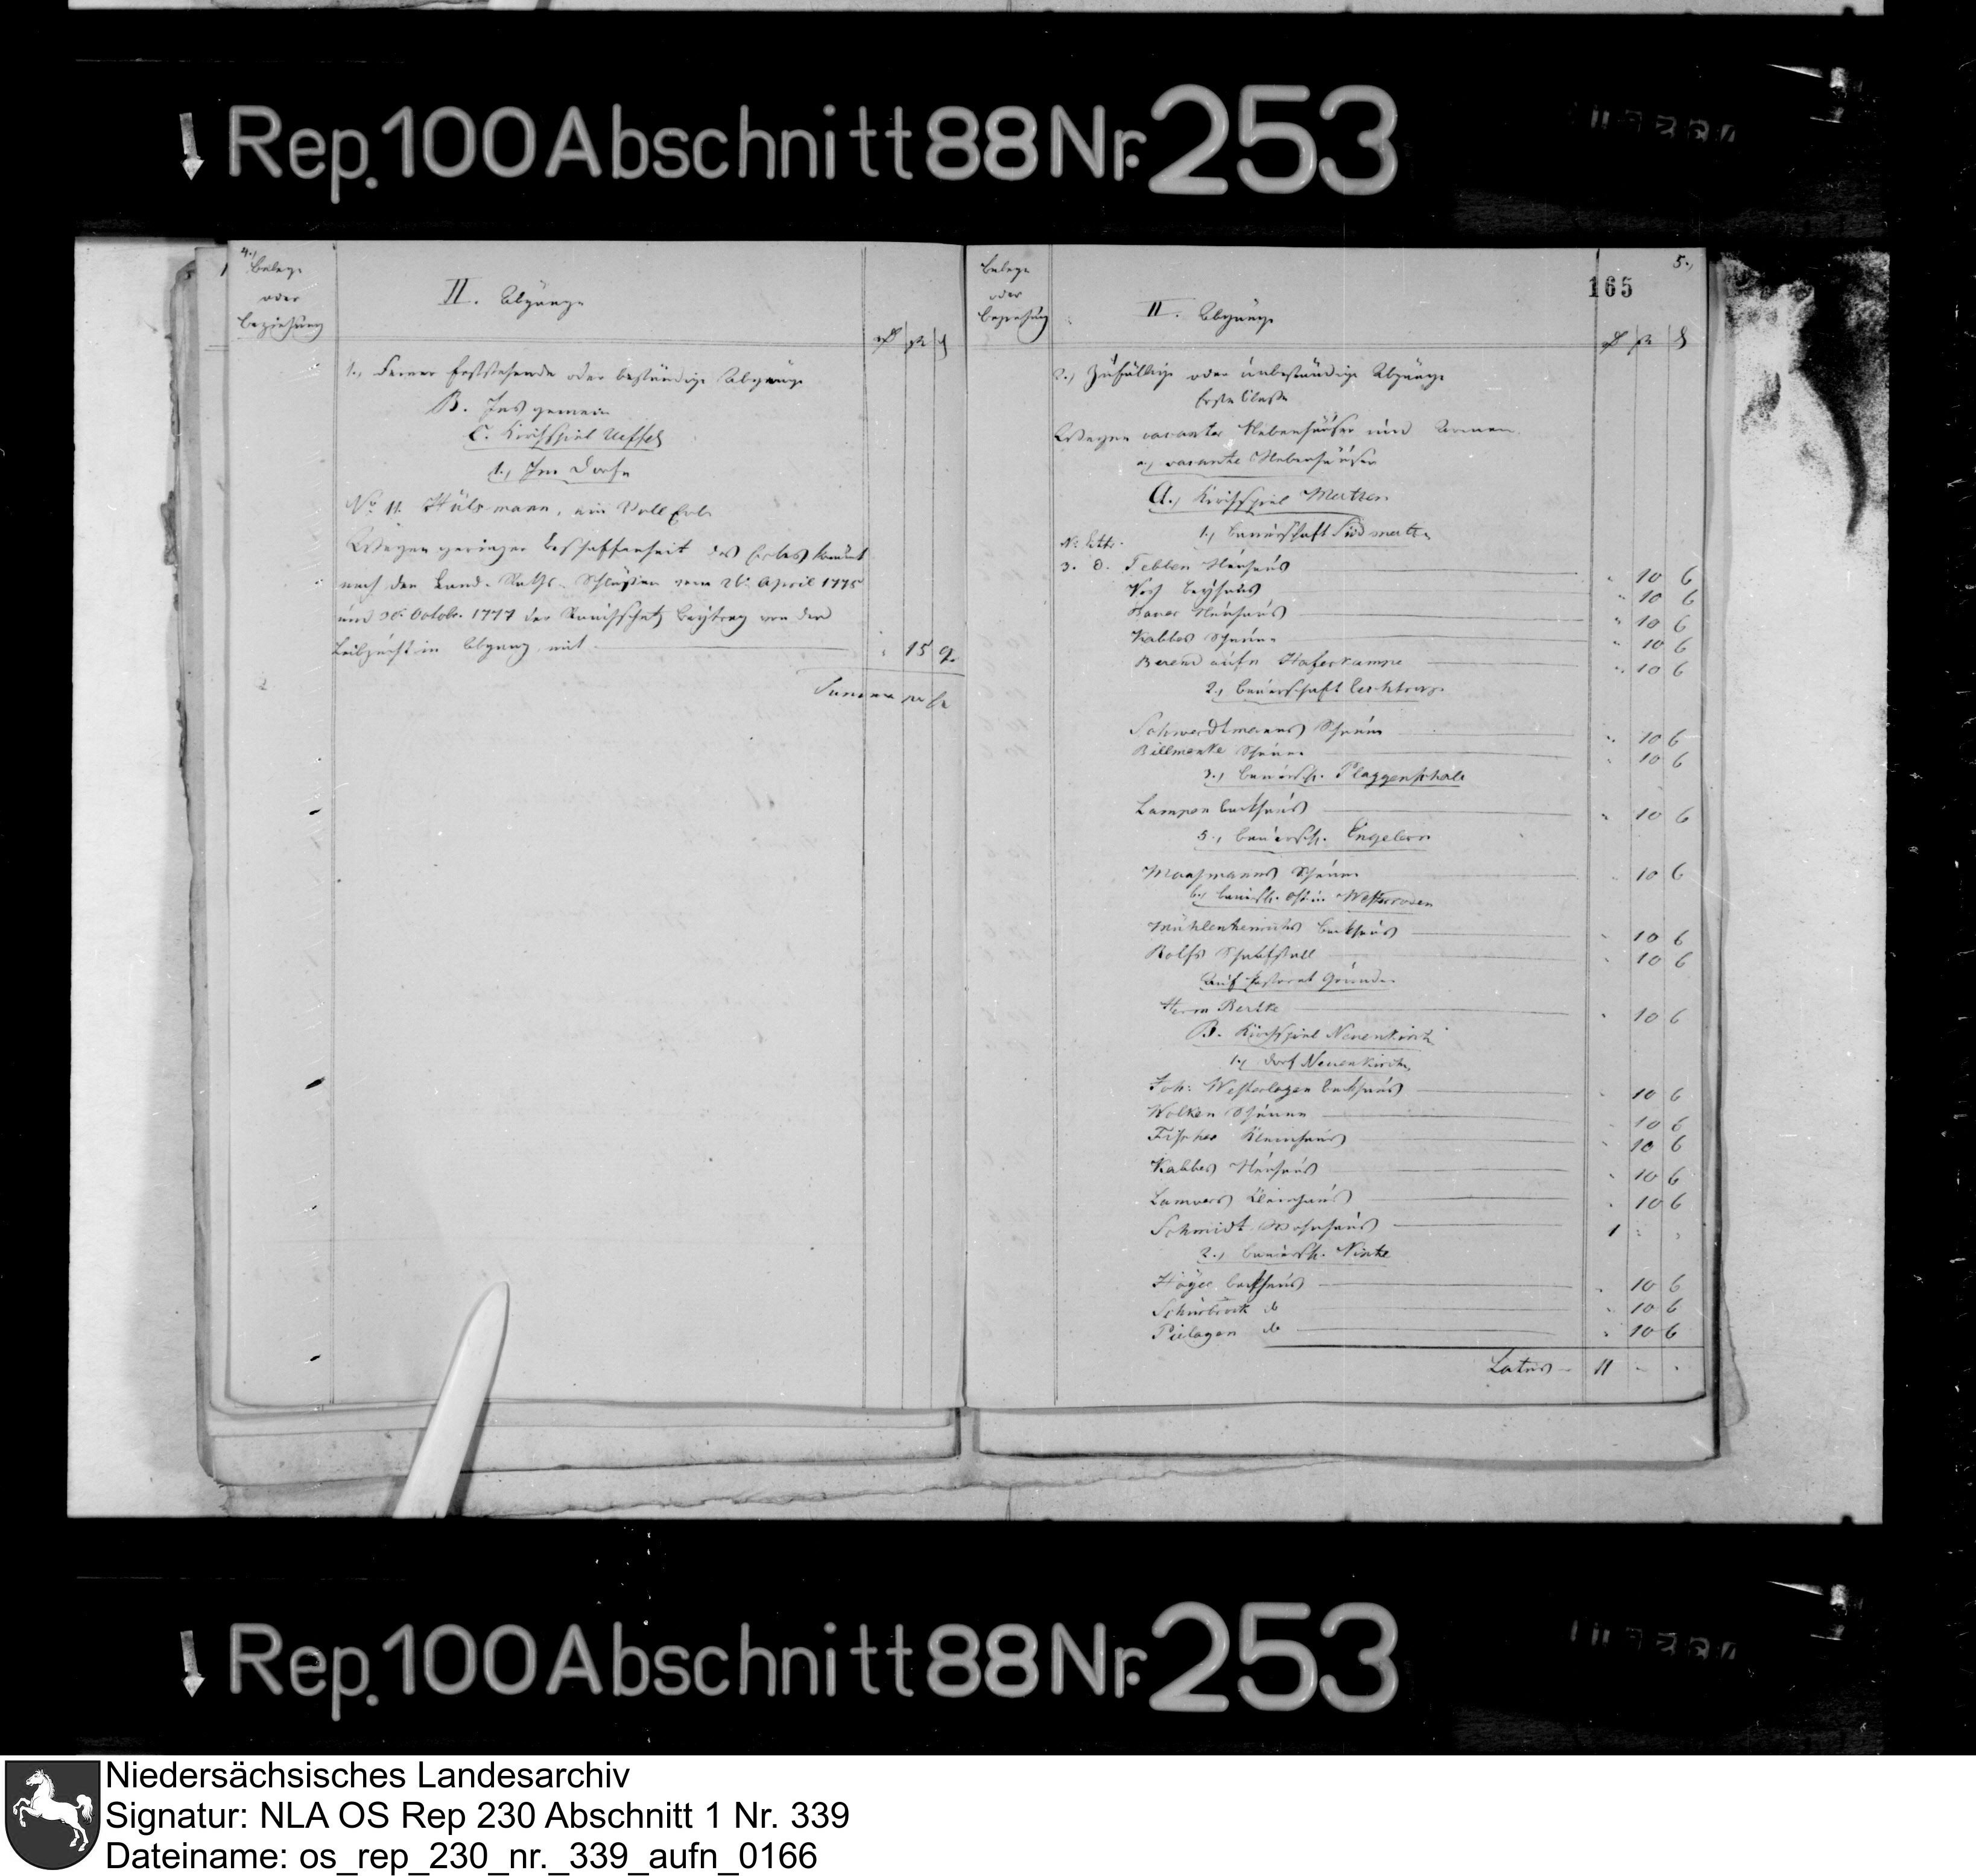 Rep. 100 Abschnitt 88 Nr. 253
4.,
Belege
oder
Beziehung
II. Abgänge
1., Ferner feststehende oder beständige Abgänge
B. Ins gemein
C. Kirchspiel Ueffeln
1., Im Dorfe
No. 11. Hülsmann, ein Voll Erbe
Wegen geringer Beschaffenheit des Erbes kömmt
nach den Land-Raths-Schlüssen vom 26. April 1775
und 30. Octobr. 1777 der Rauchschatz Beytrag von der
Leibzucht in Abgang mit 15 9.
Summa per se
5.,
165
Belege
oder
Beziehung
II. Abgänge
2., Zufällige oder unbeständige Abgänge
Erste Classe
Wegen vacanter Nebenhäuser und Armen
a., vacante Nebenhäuser
A., Kirchspiel Mertzen
1., Bauerschaft Südmertzen
No. Littr.
3. d. Tebben Neuhaus 10 6
Beyhaus 10 6
Neuhaus 10 6
Kabbes Scheune 10 6
Berend aufn Haferkampe 10 6
2., Bauerschaft Lechtrup
Schwerdtmanns Scheune 10 6
Billmanke Scheune 10 6
3., Bauersch. Plaggenschale
Lampen Backhaus 10 6
5., Bauersch. Engelern
Maasmanns Scheune 10 6
6., Bauersch. Ost in Westerroden
Mühlenheinrichs Backhaus 10 6
Rolfs Schaafstall 10 6
Auf Pastorat Grunde
Herm Bertke 10 6
B. Kirchspiel Neuenkirchen
1., Dorf Neuenkirchen
Joh: Westerlagen Backhaus 10 6
Wolken Scheune 10 6
Fischer Kleinhaus 10 6
Kabbes Neuhaus 10 6
Lamvers Kleinhaus 10 6
Schmidt Wohnhaus 1
2., Bauersch. Vinte
Höyer Backhaus 10 6
Schürbrock do 10 6
Pielagen do 10 6
Latus 11
Rep. 100 Abschnitt 88 Nr. 253
Niedersächsisches Landesarchiv
Signatur: NLA OS Rep 230 Abschnitt 1 Nr. 339
Dateiname: os_rep_230_nr._339_aufn_0166